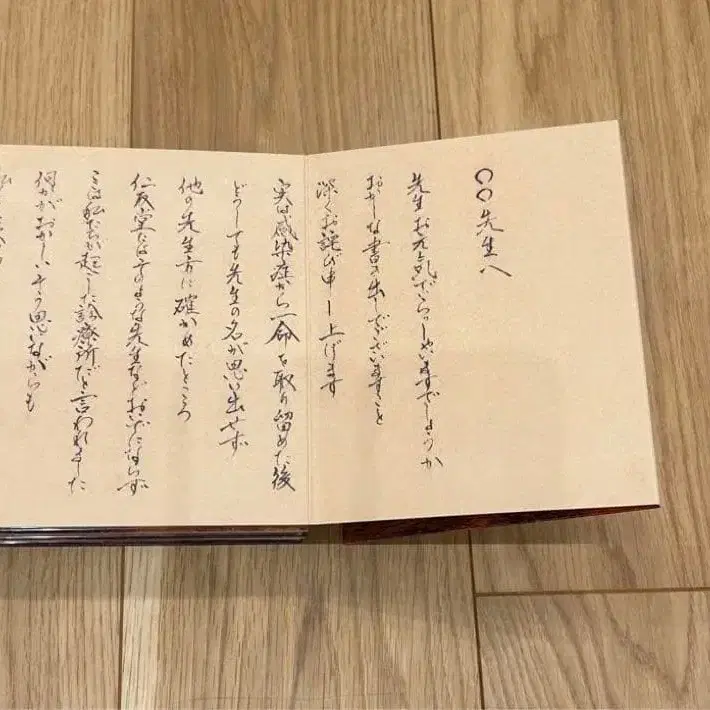 〇〇先生へ
先生お元気でらっしゃいますでしょうか
おかしな書き出しでございますこと
深くお詫び申し上げます
実は感染症から一命を取り留めた後
どうしても先生の名が思い出せず
他の先生方に確かめたところ
仁友堂にはそのような先生などおいでにならず
ここは私たちが起こした診療所だと言われました
何かがおかしいそう思いながらも